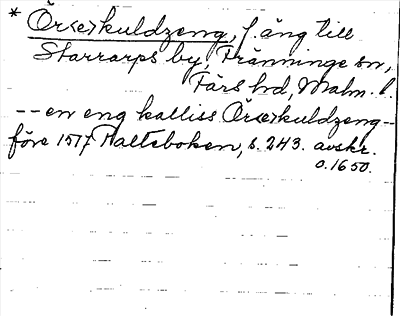 * Ör<e>kuldzeng, f. äng till
Starrarps by, Fränninge sn,
Färs hd, Malm. l.
-- en eng kalliss Ör<e>kuldzeng --
före 1517 Malteboken, s. 243. avskr.
o. 1650.